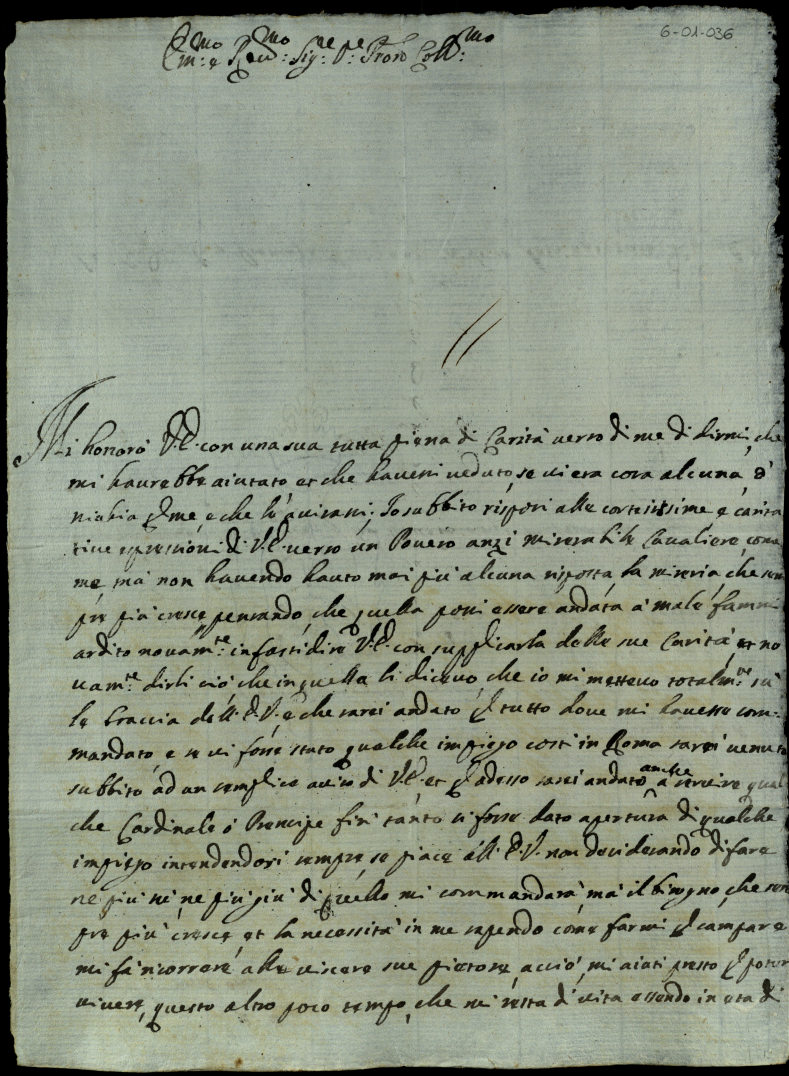 6-01-036
Em:mo e Reu:mo Sig:re P:ne Prone Coll:mo
Mi honorò V.E. con una sua tutta piena di Carità uerso di me di dirmi, che
mi haurebbe aiutato et che hauessi ueduto, se ui era cosa alcuna ò
nicchia p me, e che l'auisassi; Io subbito risposi alle cortesissime e carita
tiue espressioni di V.E. uerso un Pouero anzi miserabile Caualiere come
me mà non hauendo hauto mai più alcuna risposta la miseria, che sem
pre più cresce pensando, che quella possi essere andata à male fammi
ardito nouam:te infastidire V.E. con supplicarla delle sue Carità et no
uam:te dirli ciò che in quella li diceuo, che io mi metteuo totalm:te sù
le braccia dell'E.V. e che sarei andato p tutto doue mi hauesse com-
mandato, e se ui fosse stato qualche impiego costì in Roma sarei uenuto
subbito ad un semplice auiso di V.E. et p adesso sarei andato anche à seruire qual
che Cardinale ò Prencipe fin tanto si fosse dato apertura di qualche
impiego intendendosi sempre se piace all'E.V. non desiderando di fare
ne più sù ne più giù di quello mi commandarà mà il bisogno che sem
pre più cresce, et la necessità in me sapendo come farmi p campare
mi fà ricorrere alle uiscere sue pietose, acciò mi aiuti presto p poter
uiuere, questo altro poco tempo, che mi resta di uita essendo in età di